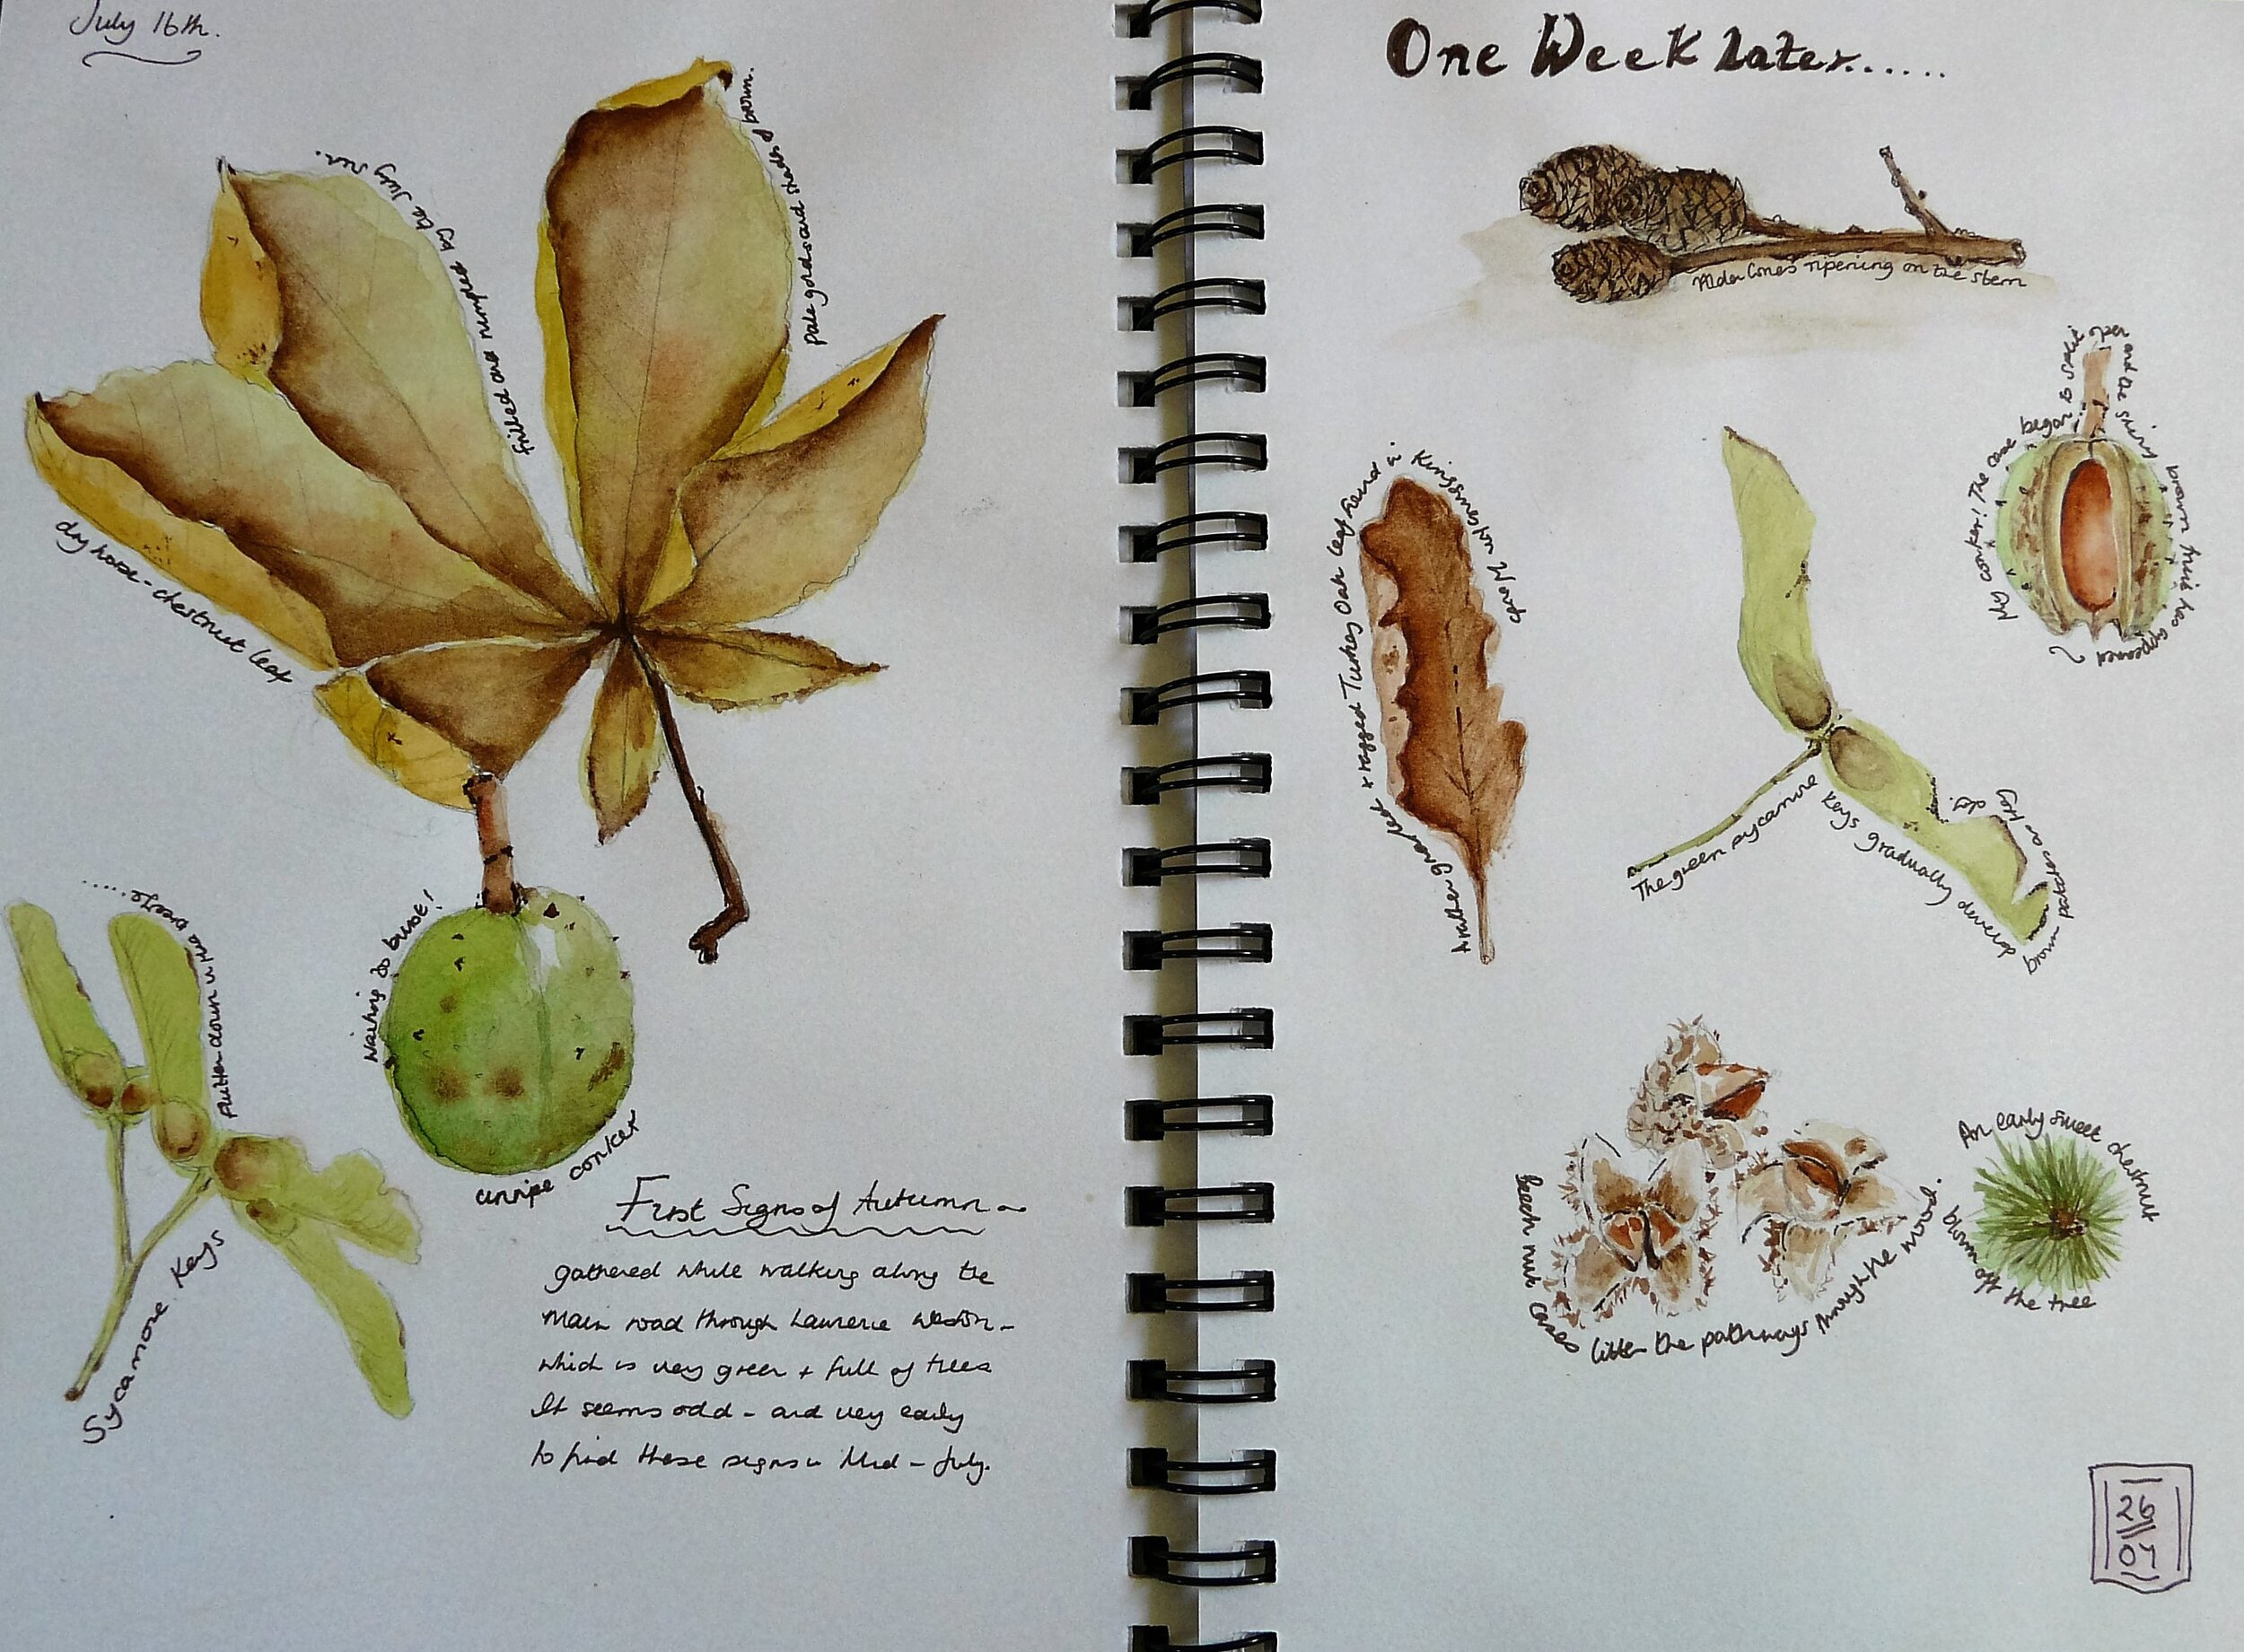 July 16th.
frilled and rumpled by the July sun.
Pale golds and shades of brown.
dry horse-chestnut leaf
Waiting to burst!
unripe conker
flutter down in the breeze......
Sycamore Keys
First Signs of Autumn
gathered while walking along the
main road through Laurence Weston -
which is very green + full of trees
It seems odd - and very early
to find these signs in Mid-July.
One Week Later......
Alder Cones ripening on the stem
My conker! The case began to split open and the shiny brown fruit has appeared
Another gnarled + ragged Turkey Oak leaf found in Kingsweston Wood
The green sycamore keys gradually develop brown patches as they dry.
Beech nut cases litter the pathways through the wood.
An early sweet chestnut blown off the tree
26
07